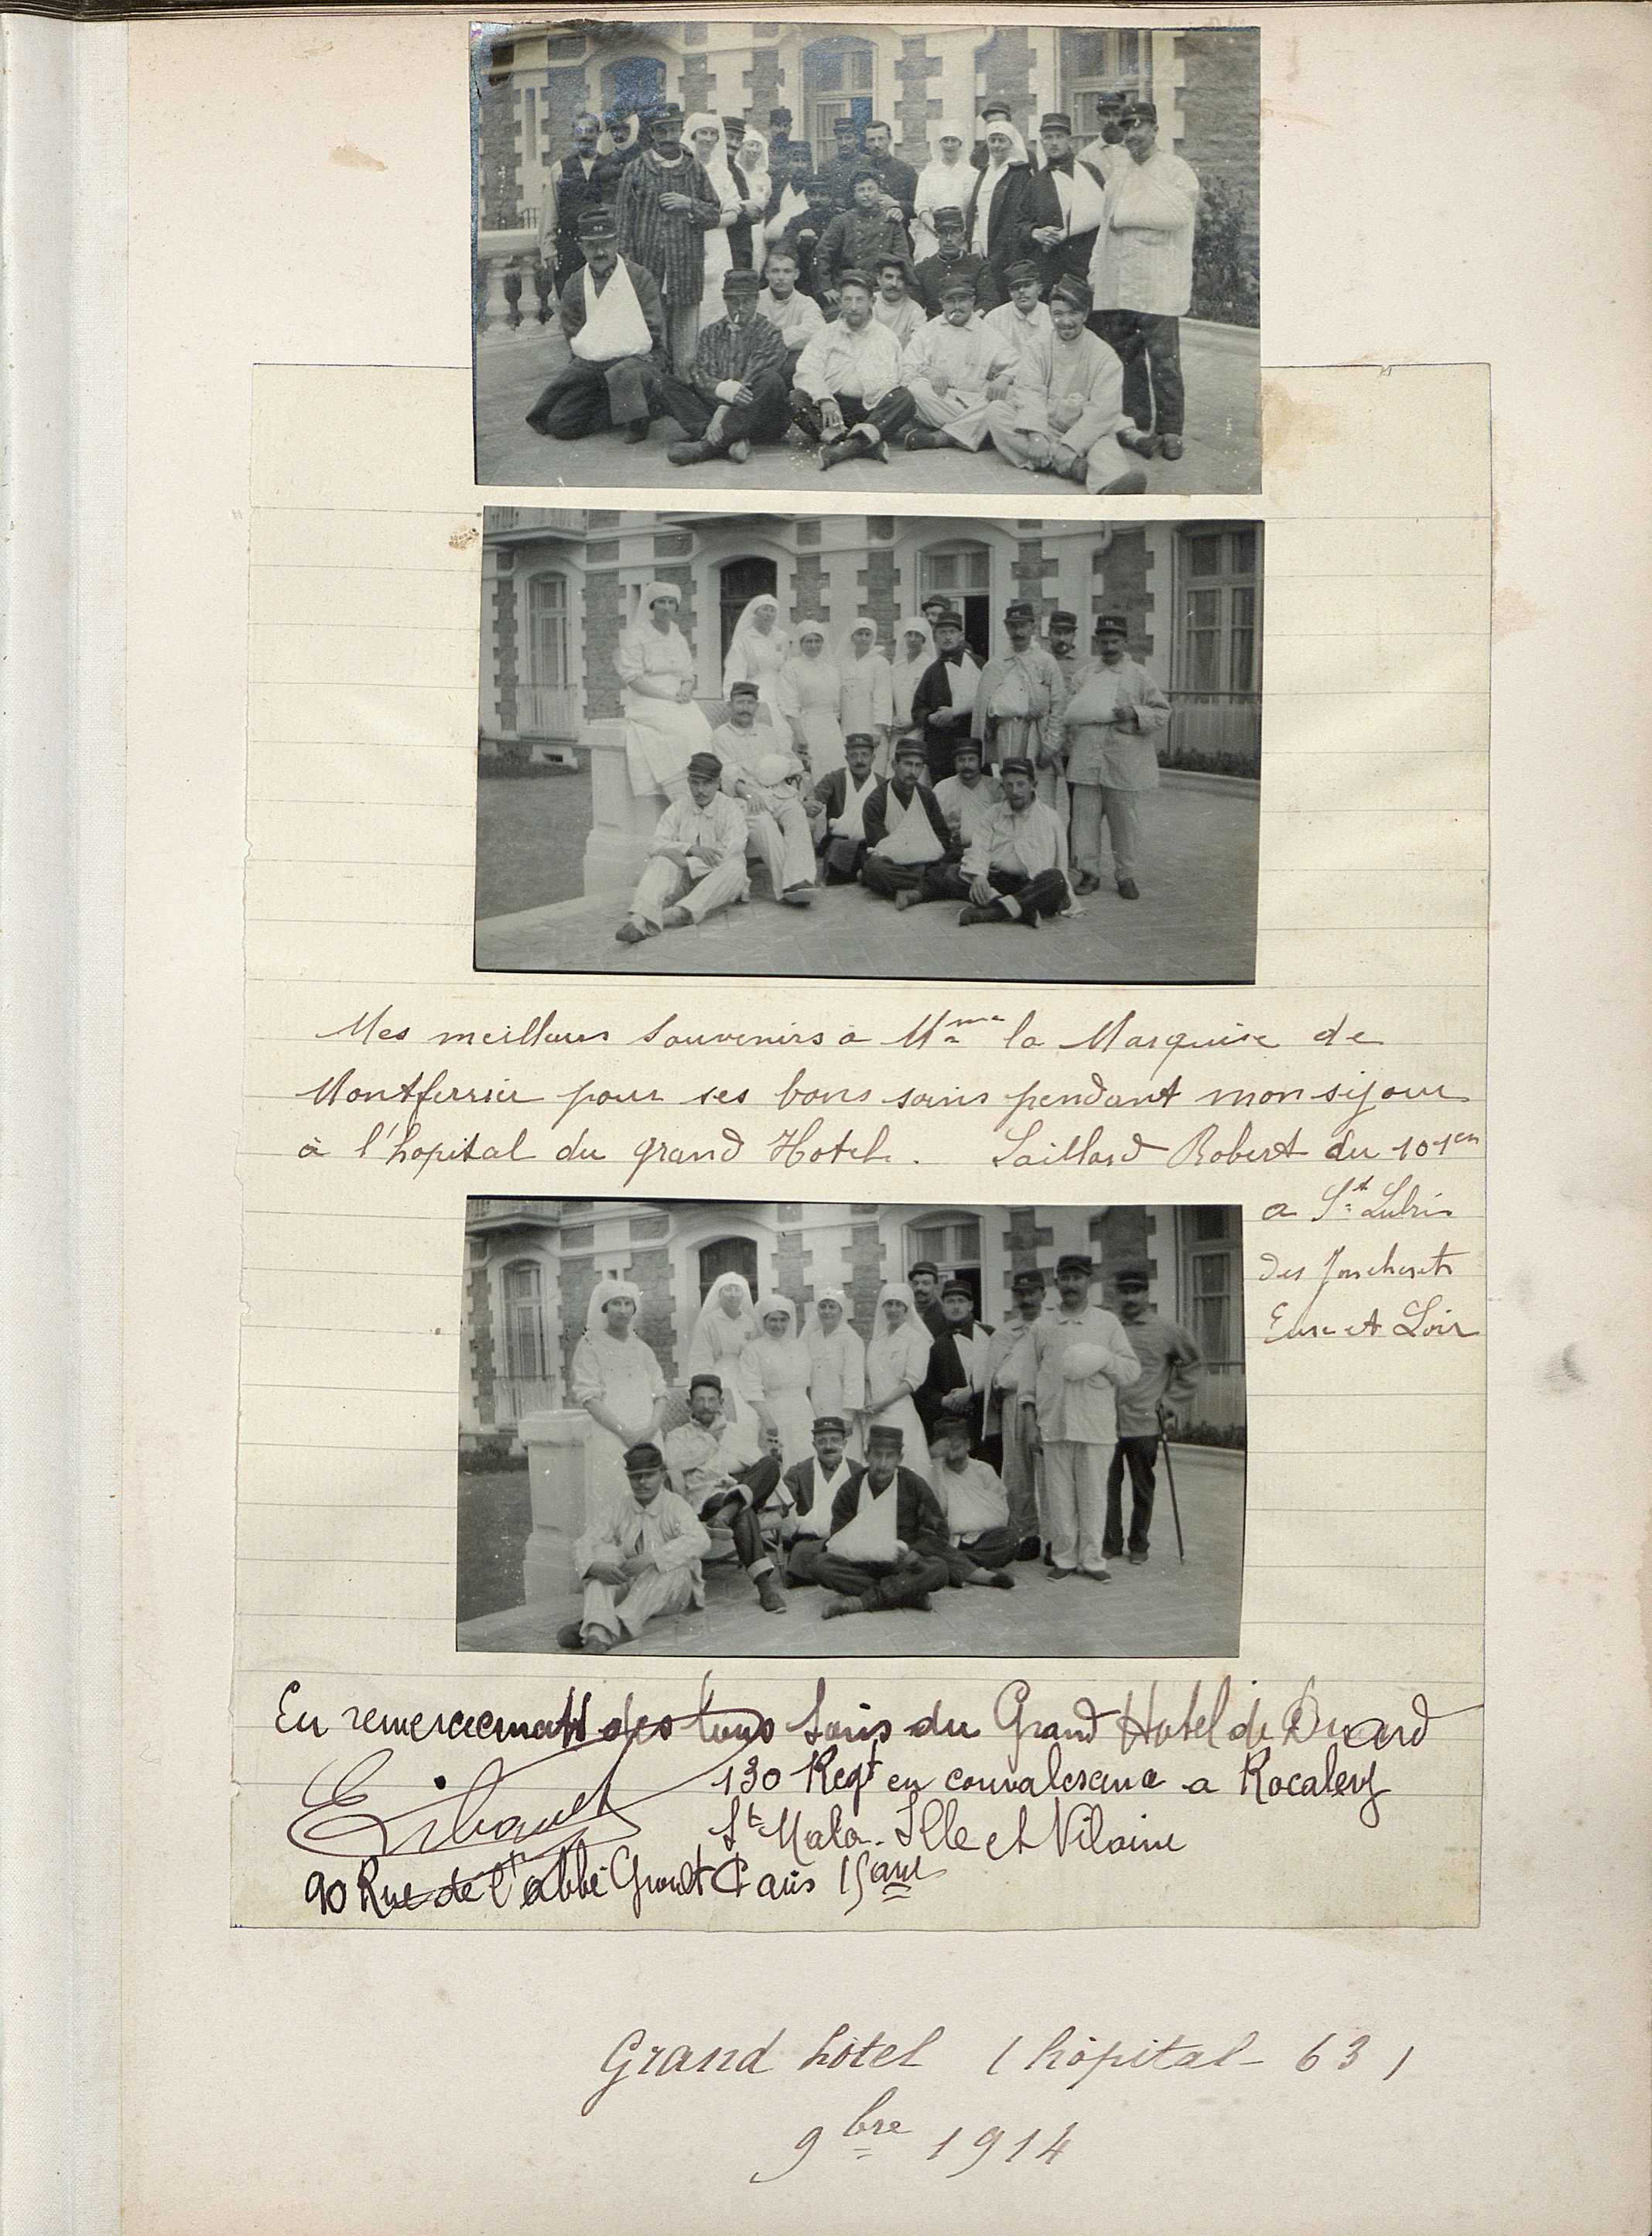 Mes meilleurs souvenirs à Mme la Marquise de
Montferrier pour ses bons soins pendant mon séjour
à l'hopital du grand Hotel. Saillard Robert du 101em
a St Lubin
des Joncherets
Eure et Loir
En remerciement des bons soins du Grand Hotel de Dinard
130 Regt en convalescence a Rocabey
St Malo. Ille et Vilaine
90 Rue de l'abbé Groult Paris 15eme
Grand hôtel (hôpital - 63)
9bre 1914